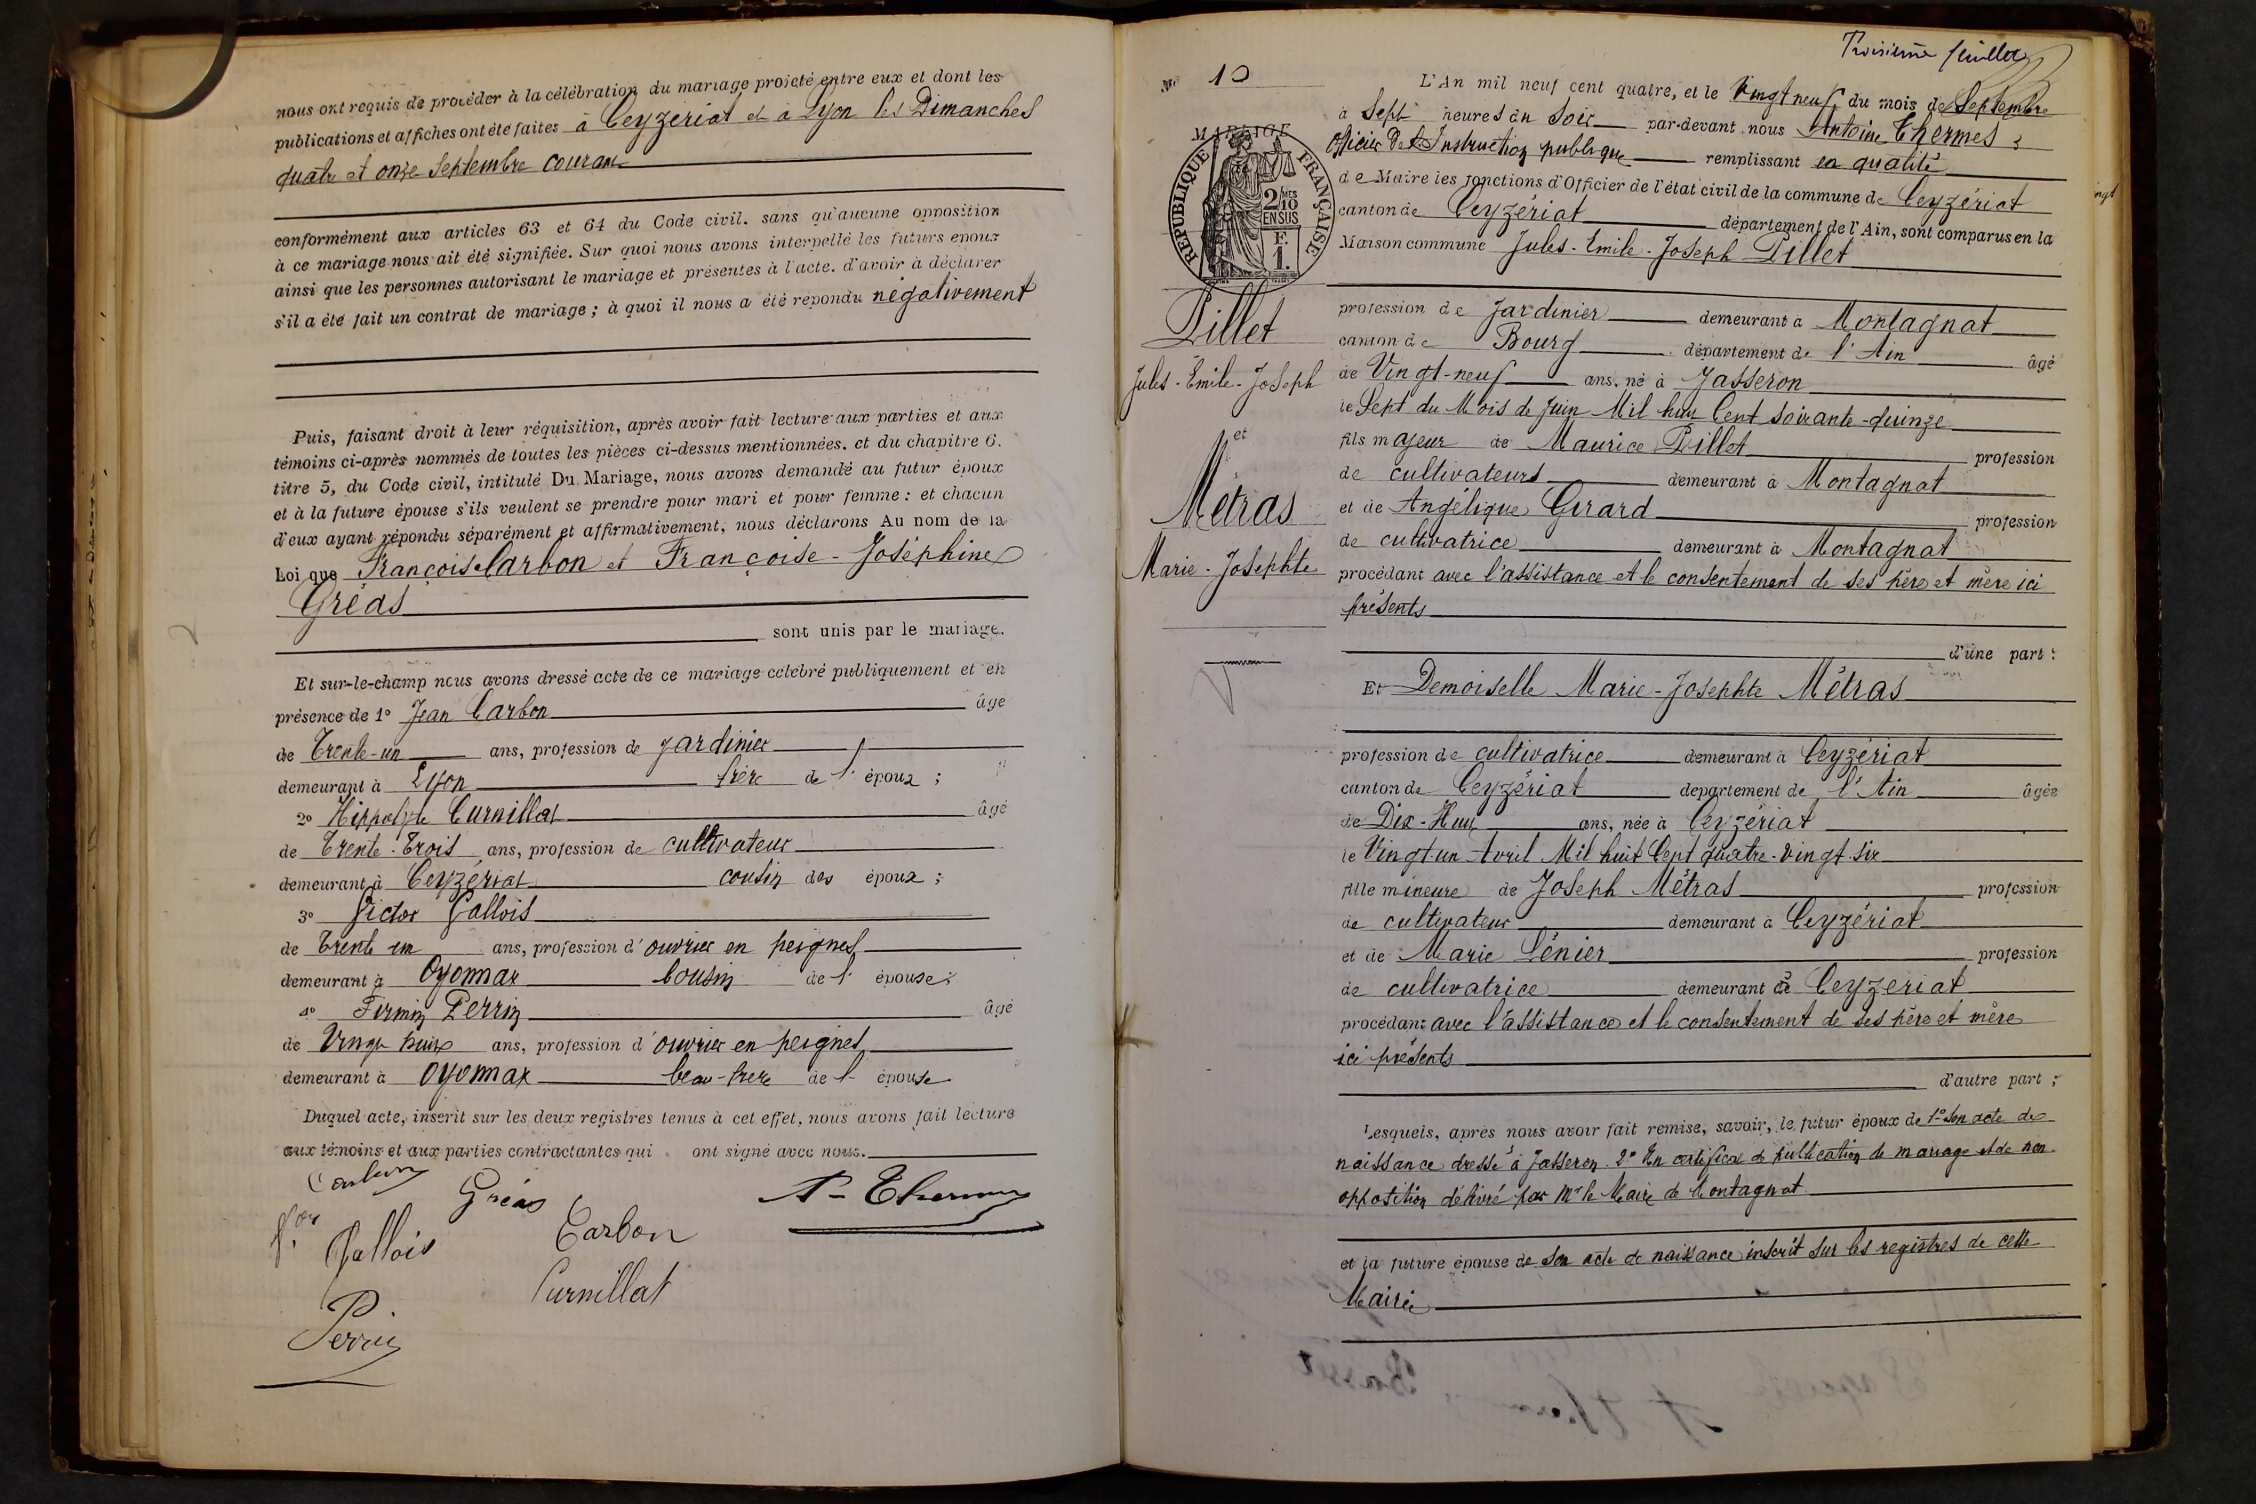 nous ont requis de procéder à la célébration du mariage projeté entre eux et dont les
publications et affiches ont été faites à Ceyzériat et à Lyon les Dimanches
quatre et onze Septembre courant
conformément aux articles 63 et 64 du Code civil. sans qu'aucune opposition
à ce mariage nous ait été signifiée. Sur quoi nous avons interpellé les futurs époux
ainsi que les personnes autorisant le mariage et présentes à l'acte. d'avoir à déclarer
s'il a été fait un contrat de mariage ; à quoi il nous a été répondu négativement
Puis, faisant droit à leur réquisition, après avoir fait lecture aux parties et aux
témoins ci-après nommés de toutes les pièces ci-dessus mentionnées. et du chapitre 6.
titre 5, du Code civil, intitulé Du Mariage, nous avons demandé au futur époux
et à la future épouse s'ils veulent se prendre pour mari et pour femme : et chacun
d'eux ayant répondu séparément et affirmativement, nous déclarons Au nom de la
Loi que François Carbon et Françoise - Joséphine
Gréas
sont unis par le mariage.
Et sur-le-champ nous avons dressé acte de ce mariage célébré publiquement et en
présence de 1° Jean Carbon âgé
de Trente-un ans, profession de jardinier
demeurant à Lyon frère de l' époux ;
2° Hippolyte Curnillat âgé
de Trente-Trois ans, profession de cultivateur
demeurant à Ceyzériat cousin des époux ;
3° Victor Gallois
de Trente un ans, profession d' ouvrier en peignes
demeurant à Oyonnax Cousin de l' épouse ;
4° Firmin Perrin âgé
de Vingt huit ans, profession d' ouvrier en peignes
demeurant à Oyonnax beau-frère de l' épouse
Duquel acte, inscrit sur les deux registres tenus à cet effet, nous avons fait lecture
aux témoins et aux parties contractantes qui ont signé avec nous.
Carbon
Gréas
A. Thermes
Gallois
Carbon
Curnillat
Perrin
Troisième feuillet
No 10
L'An mil neuf cent quatre, et le Vingt neuf du mois de Septembre
à Sept heures du Soir par-devant nous Antoine Thermes,
officier de l'Instruction publique remplissant en qualité
de Maire les fonctions d'Officier de l'état civil de la commune de Ceyzériat
canton de Ceyzériat département de l'Ain, sont comparus en la
Maison commune Jules - Emile - Joseph Pillet
MARIAGE
RÉPUBLIQUE FRANÇAISE
2/10 MES
EN SUS
F.
1.
Pillet
Jules - Emile - Joseph
et
Métras
Marie - Josephte
profession de Jardinier demeurant à Montagnat
canton de Bourg département de l'Ain âgé
de Vingt-neuf ans, né à Jasseron
le Sept du Mois de Juin Mil huit Cent soixante-quinze
fils majeur de Maurice Pillet profession
de cultivateurs demeurant à Montagnat
et de Angélique Girard profession
de cultivatrice demeurant à Montagnat
procédant avec l'assistance et le consentement de ses père et mère ici
présents
d'une part :
Et Demoiselle Marie - Josephte Métras
profession de cultivatrice demeurant à Ceyzériat
canton de Ceyzériat département de l'Ain âgée
de Dix-Huit ans, née à Ceyzériat
le Vingt-un Avril Mil huit Cent quatre-vingt-six
fille mineure de Joseph Métras profession
de cultivateur demeurant à Ceyzériat
et de Marie Lénier profession
de cultivatrice demeurant à Ceyzeriat
procédant avec l'assistance et le consentement de ses père et mère
ici présents
d'autre part ;
Lesquels, après nous avoir fait remise, savoir, le futur époux de 1° Son acte de
naissance dressé à Jasseron. 2° Un certificat de publication de mariage et de non
opposition délivré par Mr le Maire de Montagnat
et la future épouse de Son acte de naissance inscrit sur les registres de cette
Mairie